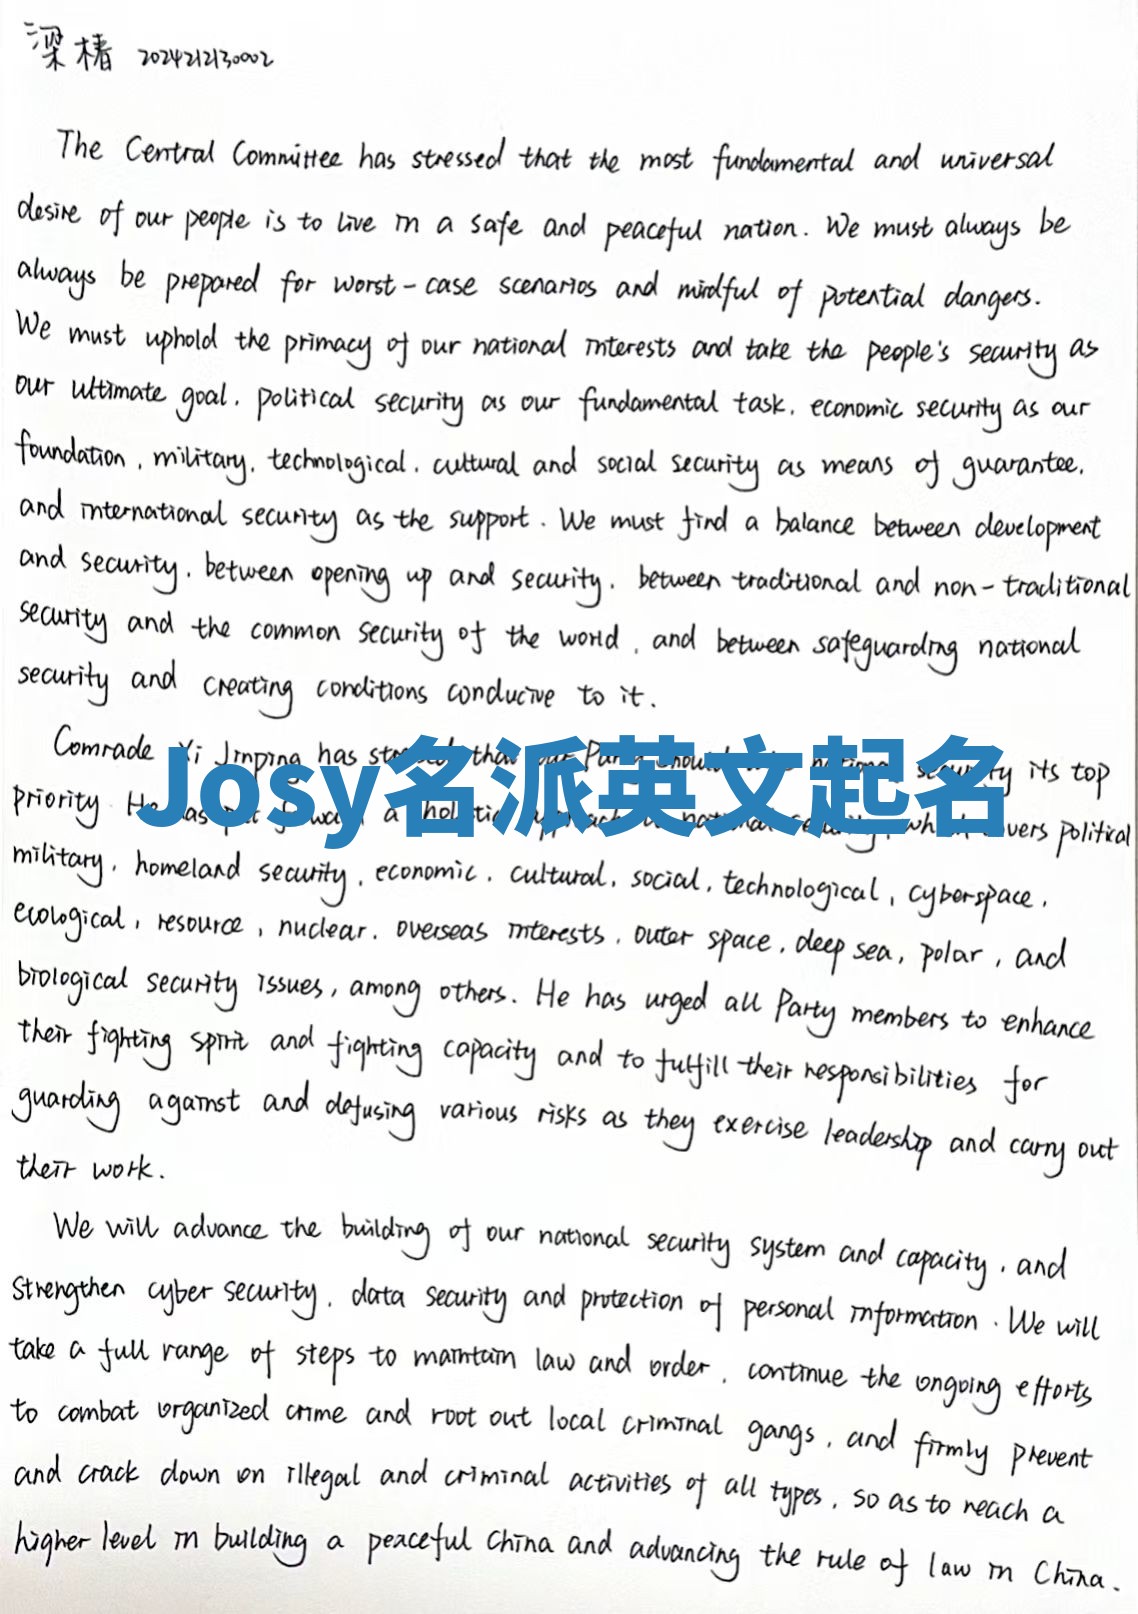 梁椿 2024212130002
The Central Committee has stressed that the most fundamental and universal
desire of our people is to live in a safe and peaceful nation. We must always be
always be prepared for worst-case scenarios and mindful of potential dangers.
We must uphold the primacy of our national interests and take the people's security as
our ultimate goal, political security as our fundamental task, economic security as our
foundation, military, technological, cultural and social security as means of guarantee,
and international security as the support. We must find a balance between development
and security, between opening up and security, between traditional and non-traditional
security and the common security of the world, and between safeguarding national
security and creating conditions conducive to it.
Comrade Xi Jinping has that Party national security its top
priority. He has put forward a holistic approach national security, which covers political
Josy名派英文起名
military, homeland security, economic, cultural, social, technological, cyberspace,
ecological, resource, nuclear, overseas interests, outer space, deep sea, polar, and
biological security issues, among others. He has urged all Party members to enhance
their fighting spirit and fighting capacity and to fulfill their responsibilities for
guarding against and defusing various risks as they exercise leadership and carry out
their work.
We will advance the building of our national security system and capacity, and
strengthen cyber security, data security and protection of personal information. We will
take a full range of steps to maintain law and order, continue the ongoing efforts
to combat organized crime and root out local criminal gangs, and firmly prevent
and crack down on illegal and criminal activities of all types, so as to reach a
higher level in building a peaceful China and advancing the rule of law in China.